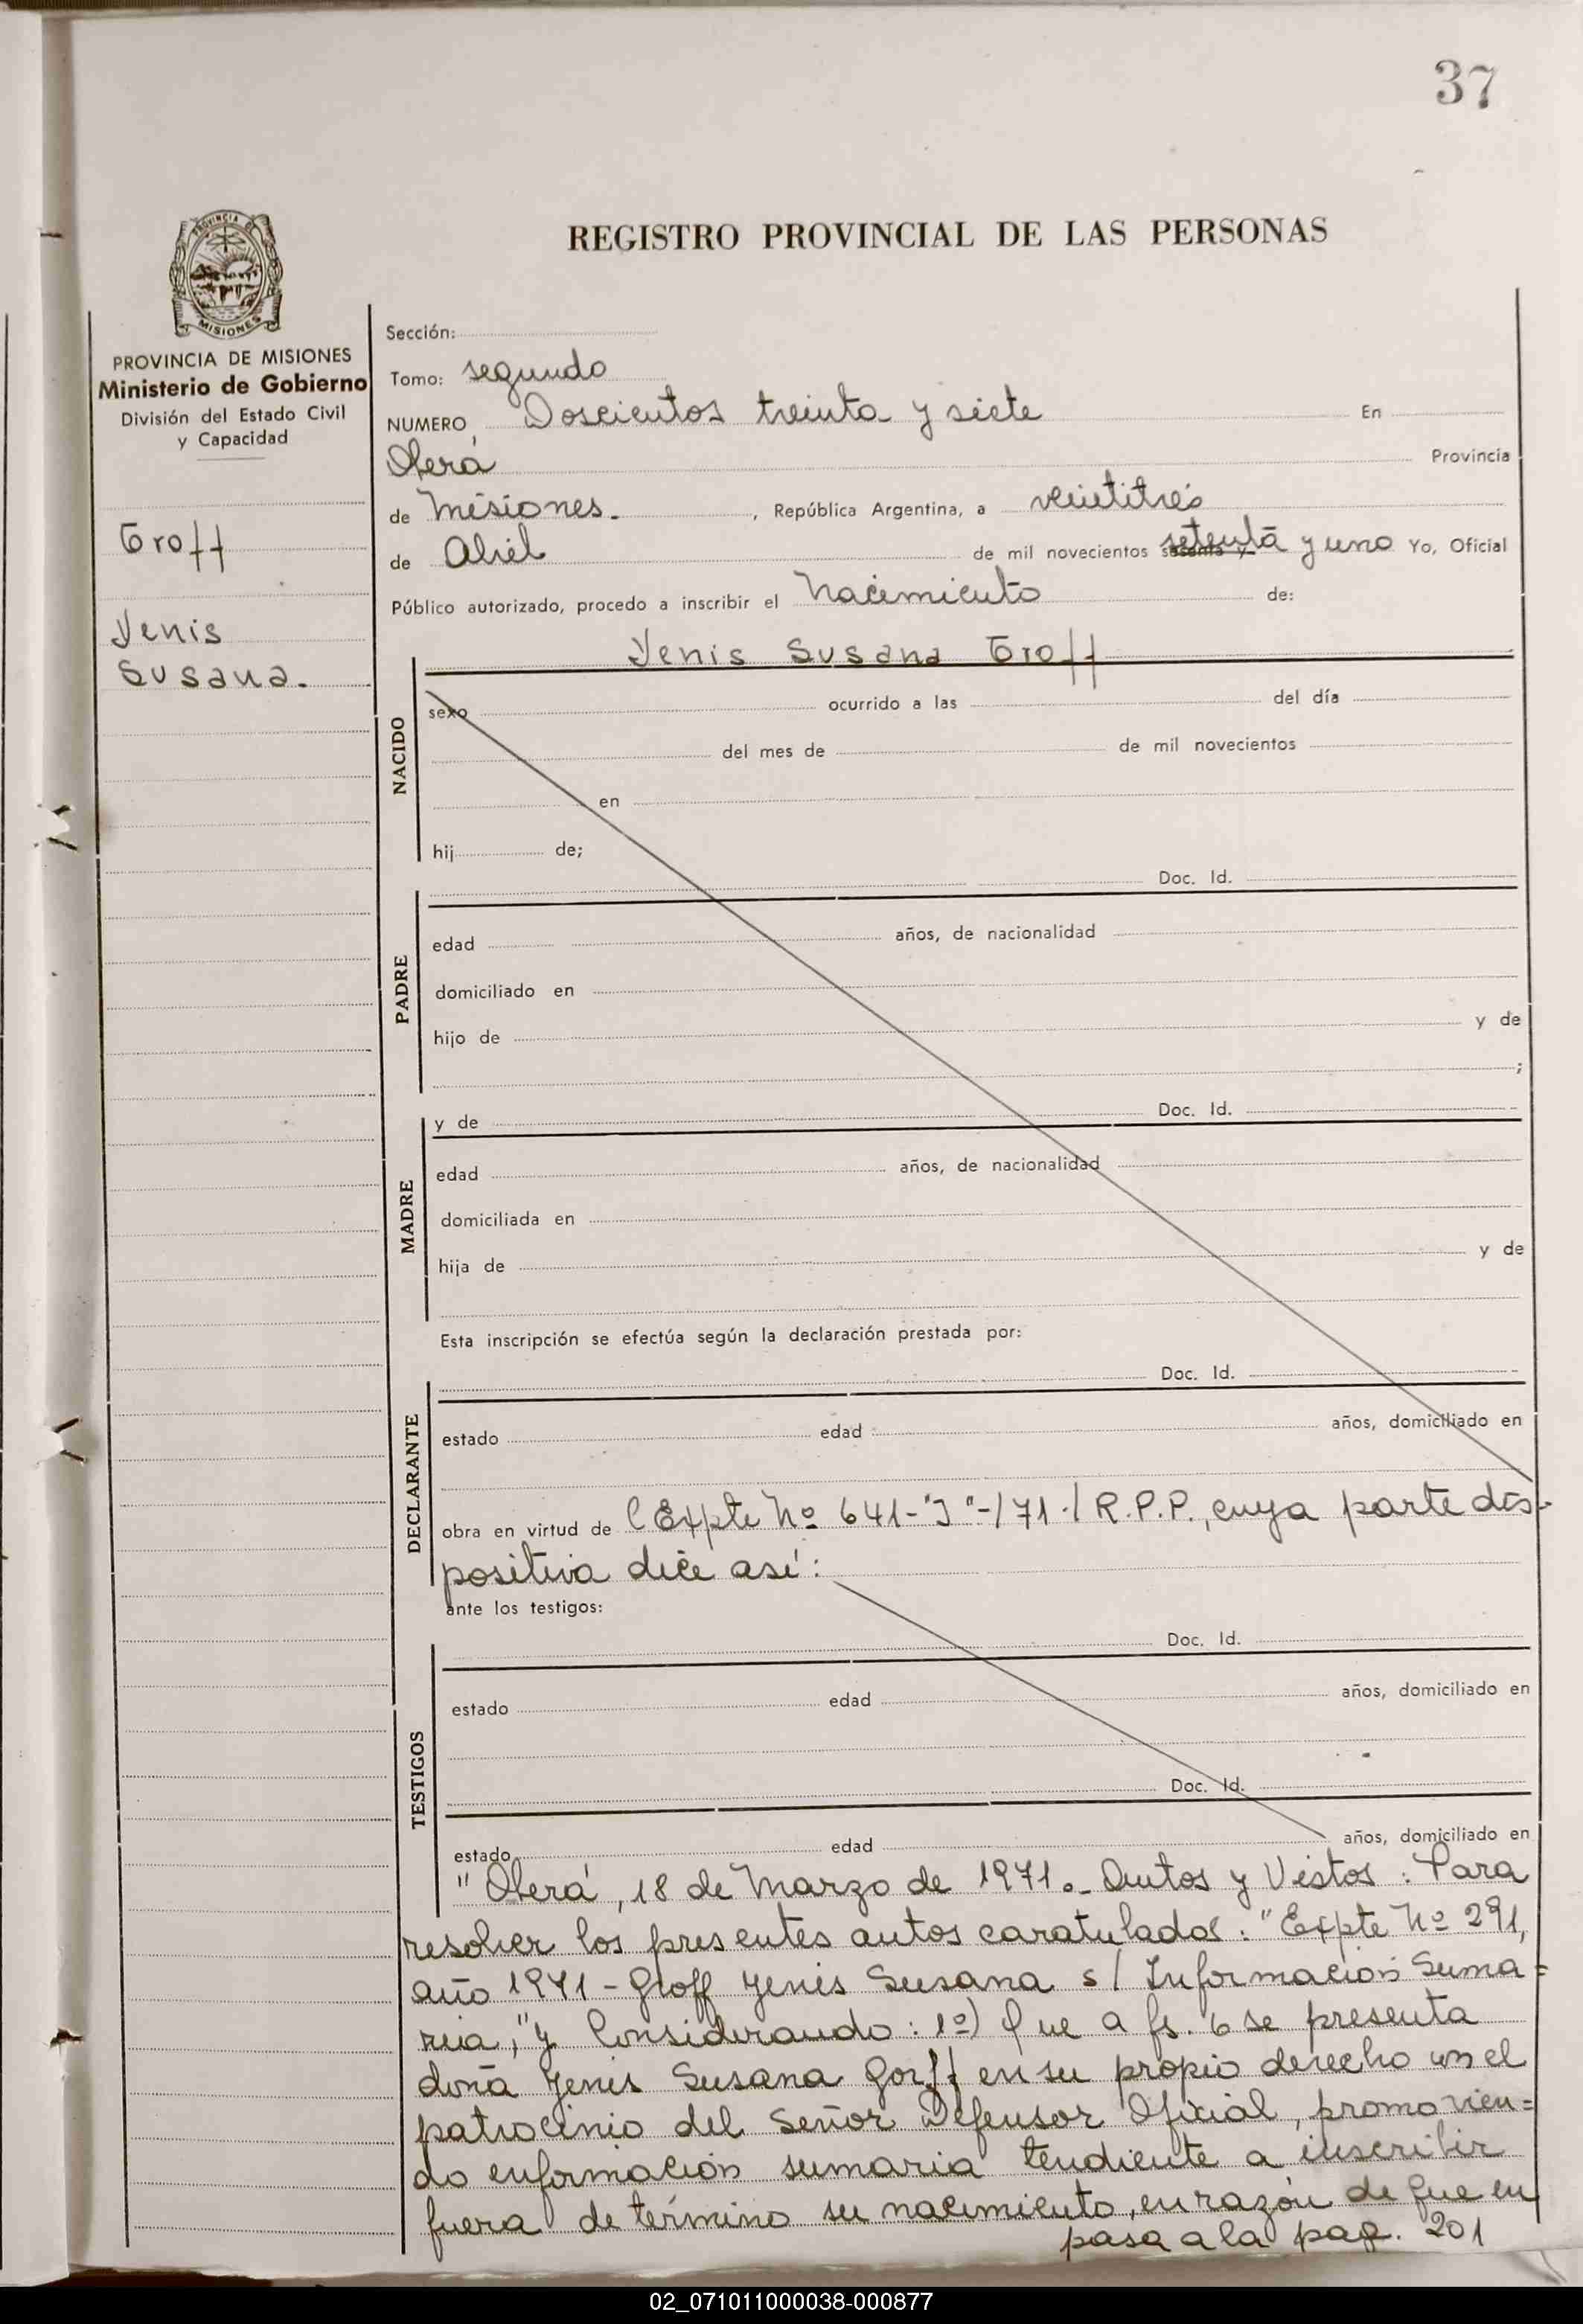 37
REGISTRO PROVINCIAL DE LAS PERSONAS
PROVINCIA DE
MISIONES
PROVINCIA DE MISIONES
Ministerio de Gobierno
División del Estado Civil
y Capacidad
Groff
Yenis
Susana.
Sección:
Tomo: segundo
NUMERO Doscientos treinta y siete En
Oberá Provincia
de Misiones. , República Argentina, a veintitrés
de Abril de mil novecientos sesenta y setenta y uno Yo, Oficial
Público autorizado, procedo a inscribir el Nacimiento de:
Yenis Susana Groff
NACIDO
sexo ocurrido a las del día
del mes de de mil novecientos
en
hij de;
Doc. Id.
PADRE
edad años, de nacionalidad
domiciliado en
hijo de y de
;
y de Doc. Id.
MADRE
edad años, de nacionalidad
domiciliada en
hija de y de
Esta inscripción se efectúa según la declaración prestada por:
Doc. Id.
DECLARANTE
estado edad años, domiciliado en
obra en virtud de l Expte Nº 641-"J"-/71./R.P.P., cuya parte dis-
positiva dice así:
ante los testigos:
Doc. Id.
TESTIGOS
estado edad años, domiciliado en
Doc. Id.
estado edad años, domiciliado en
"Oberá, 18 de Marzo de 1971.- Autos y Vistos: Para
resolver los presentes autos caratulados: "Expte Nº 291,
año 1971 - Groff Yenis Susana s/ Informacion Suma=
ria," y Considerando: 1º) Que a fs. 6 se presenta
doña Yenis Susana Gorff en su propio derecho con el
patrocinio del Señor Defensor Oficial, promovien=
do enformación sumaria tendiente a inscribir
fuera de término su nacimiento, en razón de que en
pasa a la pag. 201
02_071011000038-000877